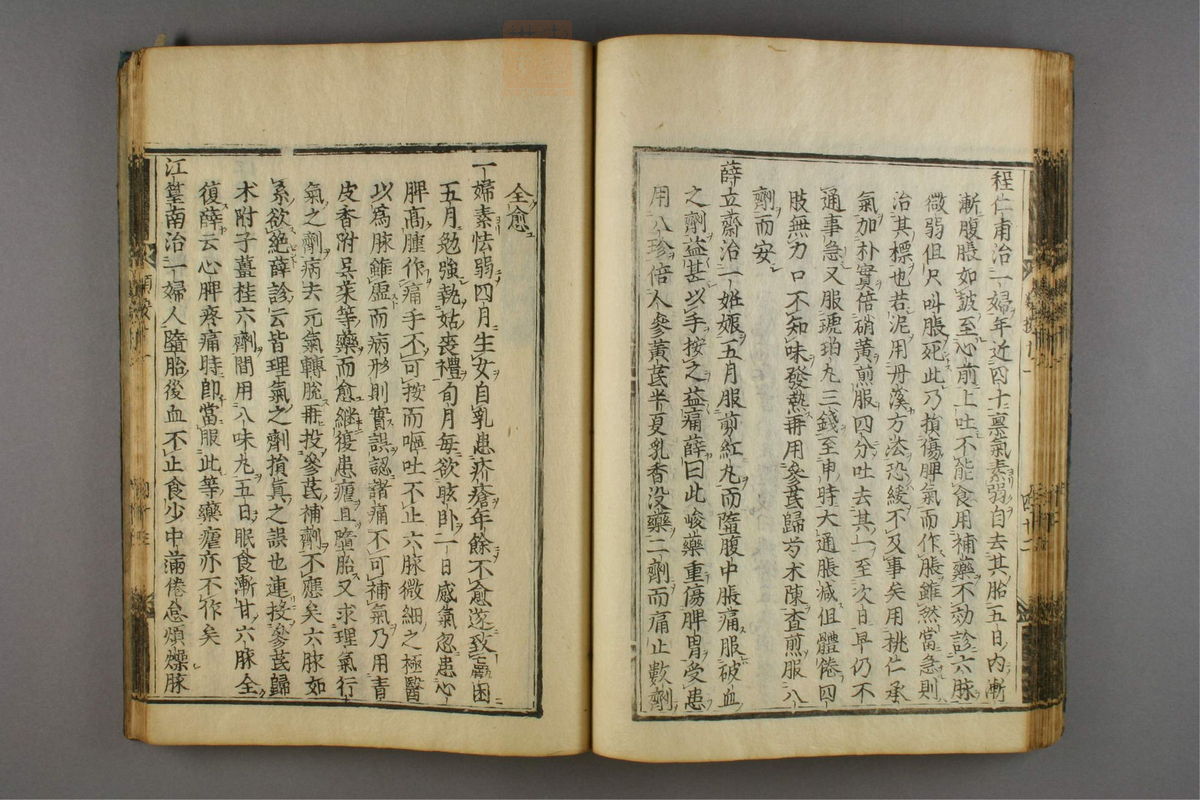 程仁甫治一婦年近四十禀氣素弱自去其胎五日內漸
漸腹脹如皷至心前上吐不能食用補藥不効診六脉
微弱但只叫脹死此乃損傷脾氣而作脹雖然當急則
治其標也若泥用丹溪方法恐緩不及事矣用桃仁承
氣加朴實倍硝黃煎服四分吐去其一至次日早仍不
通事急又服琥珀丸三錢至申時大通脹減但體倦四
肢無力口不知味發熱再用參芪歸芍木陳查煎服八
劑而安
薛立齋治一姙娠五月服剪紅丸而墮腹中脹痛服破血
之劑益甚以手按之益痛薛曰此峻藥重傷脾胃受患
用八珍倍人參黃芪半夏乳香没藥二劑而痛止數劑
全愈
一婦素怯弱四月生女自乳患疥瘡年餘不愈遂致羸困
五月勉強執姑喪禮旬月每欲眩卧一日感氣忽患心
脾高腫作痛手不可按而嘔吐不止六脉微細之極醫
以爲脉雖虛而病形則實誤認諸痛不可補氣乃用青
皮香附吳茱等藥而愈繼復患瘧且墮胎又求理氣行
氣之劑病去元氣轉脫再投參芪補劑不應矣六脉如
系欲絕薛診云皆理氣之劑損真之誤也連投參芪歸
木附子薑桂六劑間用八味丸五日眠食漸甘六脉全
復薛云心脾疼痛時卽當服此等藥瘧亦不作矣
江篁南治一婦人墮胎後血不止食少中滿倦怠煩燥脉